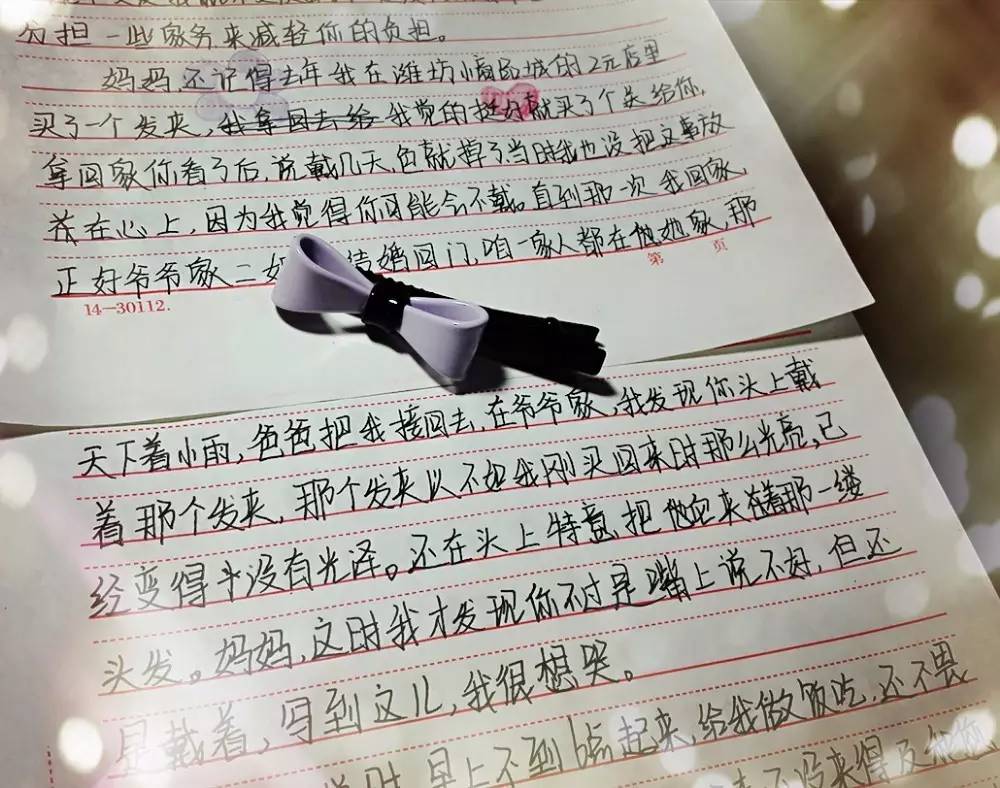 分担一些家务来减轻你的负担。
妈妈,还记得去年我在潍坊小商品城的2元店里
买了一个发夹,我拿回去给我觉的挺好就买了个头给你,
拿回家你看了后,说戴几天色就掉了当时我也没把这事放
在心上,因为我觉得你可能会不戴。直到那一次我回家,
正好爷爷家二 结婚回门,咱一家人都在他她家,那
第 页
14—30112.
天下着小雨,爸爸把我接回去,在爷爷家,我发现你头上戴
着那个发夹,那个发夹以不如我刚买回来时那么光亮,已
经变得 没有光泽。还在头上特意把他 夹在着那一缕
头发。妈妈,这时我才发现你不过是嘴上说不好,但还
是戴着,写到这儿,我很想哭。
时 早上不到6点起来,给我做饭吃,还不畏
没来得及